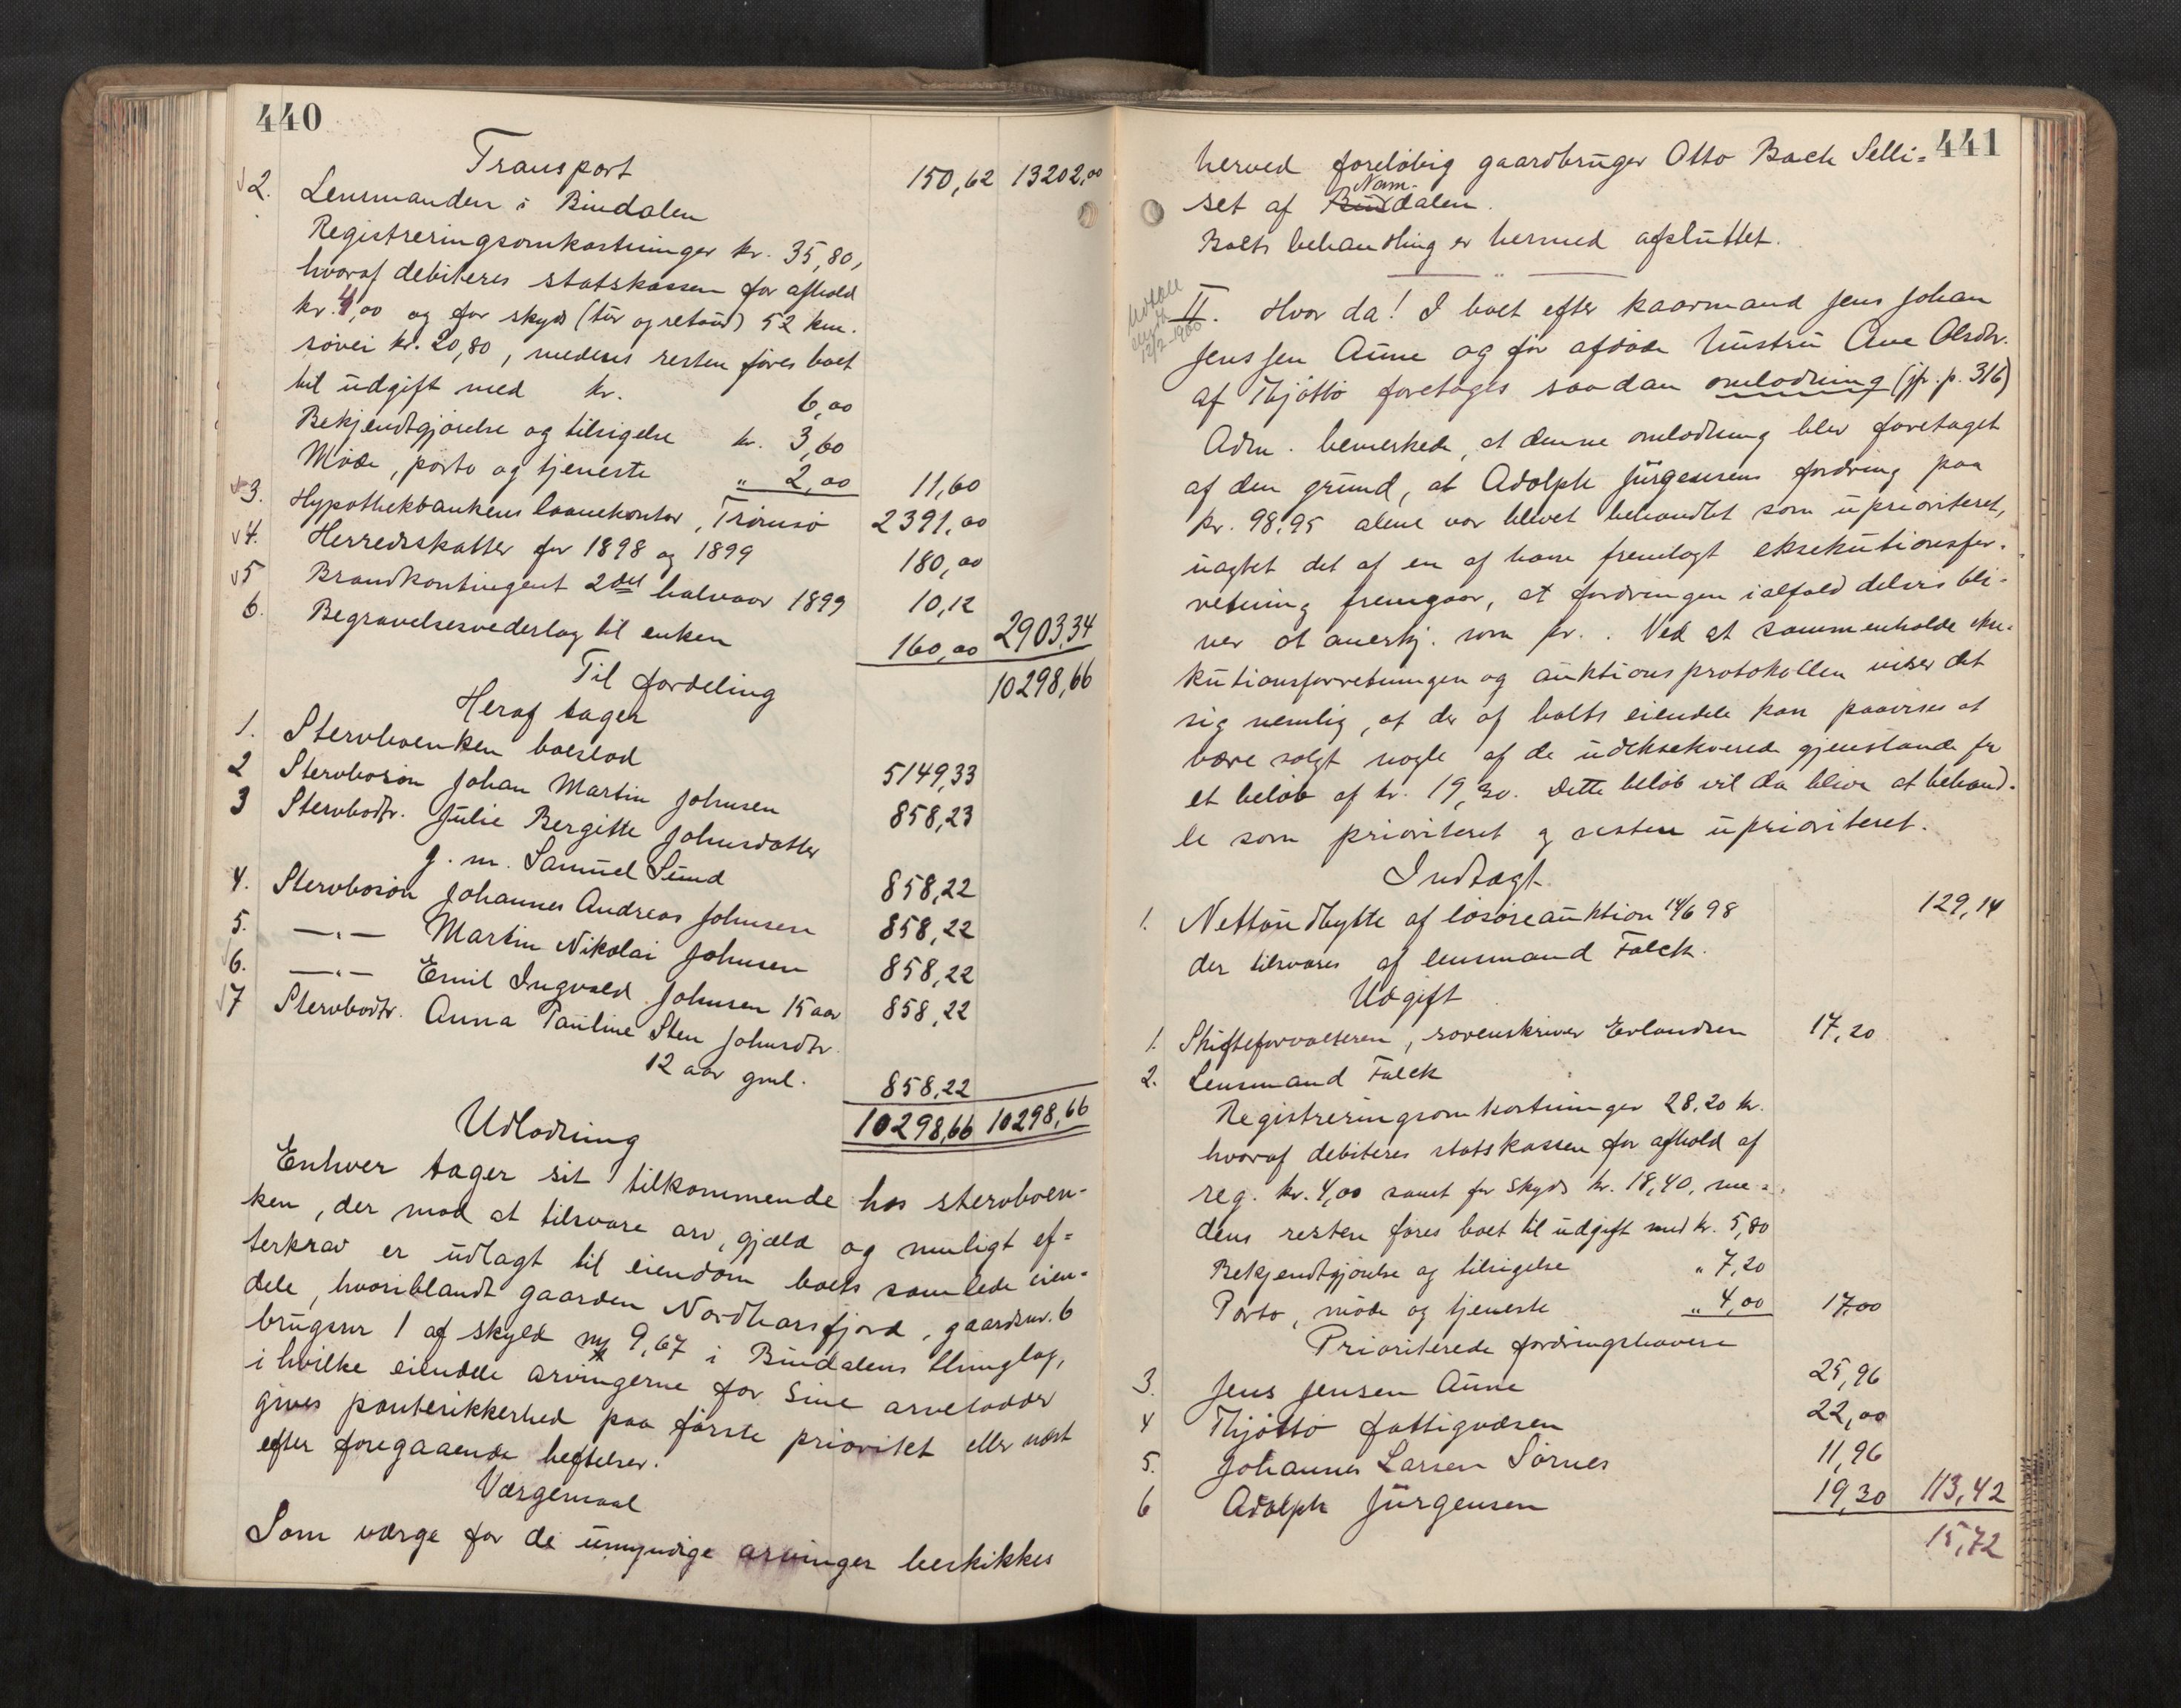 440
Transport 150,62 13202,00
2. Lensmanden i Bindalen
Registreringsomkostninger kr. 35,80,
hvoraf debiteres statskassen for afhold
kr. 4,00 og for skyds (tur og retour) 52 km.
søvei kr. 20,80, medens resten føres boet
til udgift med kr. 6,00
Bekjendtgjørelse og tilsigelse kr. 3,60
Møde, porto og tjeneste " 2,00 11,60
3. Hypothekbankens laanekontor, Tromsø 2391,00
4. Herredsskatter for 1898 og 1899 180,00
5 Brandkontingent 2det halvaar 1899 10,12
6. Begravelsesvederlag til enken 160,00 2903,34
Til fordeling 10298,66
Heraf tager
1. Stervboenken boeslod 5149,33
2 Stervbosøn Johan Martin Johnsen 858,23
3 Stervbodtr. Julie Bergitte Johnsdatter
g. m. Samuel Sund 858,22
4. Stervbosøn Johannes Andreas Johnsen 858,22
5. —„— Martin Nikolai Johnsen 858,22
6. —„— Emil Ingvald Johnsen 15 aar 858,22
7 Stervbodtr. Anna Pauline Sten Johnsdtr.
12 aar gml. 858,22
10298,66 10298,66
Udlodning
Enhver tager sit tilkommende hos stervboen-
ken, der mod at tilsvare arv, gjæld og muligt ef=
terkrav er udlagt til eiendom boets samlede eien-
dele, hvoriblandt gaarden Nordhorsfjord, gaardsnr. 6
brugsnr 1 af skyld my 9,67 i Bindalens thinglag,
i hvilke eiendele arvingerne for sine arvelodder
gives pantesikkerhed paa første prioritet eller næst
efter foregaaende heftelser.
Værgemaal
Som værge for de umyndige arvinger beskikkes
441
herved foreløbig gaardbruger Otto Bach Selli=
Nam-
set af Bindalen.
Boets behandling er hermed afsluttet.
12/2-1900
II. Hvor da! I boet efter kaarmand Jens Johan
Jenssen Aune og før afdøde hustru Ane Olsdtr.
af Thjøttø foretoges saadan omlodning (jfr. p. 316)
Adm. bemerkede, at denne omlodning blev foretaget
af den grund, at Adolph Jürgensens fordring paa
kr. 98,95 alene var blevet behandlet som uprioriteret,
uagtet det af en af ham fremlagt eksekutionsfor-
retning fremgaar, at fordringen ialfald delvis bli-
ver at anerkj. som pr.. Ved at sammenholde ekse-
kutionsforretningen og auktionsprotokollen viser det
sig nemlig, at der af boets eiendele kan paavises at
være solgt nogle af de udeksekverede gjenstande for
et beløb af kr. 19,30. Dette beløb vil da blive at behand-
le som prioriteret og resten uprioriteret.
Indtægt
1. Nettoudbytte af løsøreauktion 14/6 98 129,14
der tilsvares af lensmand Falck.
Udgift
1. Skifteforvalteren, sorenskriver Erlandsen 17,20
2. Lensmand Falck
Registreringsomkostninger 28,20 kr.
hvoraf debiteres statskassen for afhold af
reg. kr. 4,00 samt for skyds kr. 18,40, me=
dens resten føres boet til udgift med kr. 5,80
Bekjendtgjørelse og tilsigelse " 7,20
Porto, møde og tjeneste " 4,00 17,00
Prioriterede fordringshavere
3. Jens Jensen Aune 25,96
4 Thjøttø fattigvæsen 22,00
5. Johannes Larsen Sørnes 11,96
6 Adolph Jürgensen 19,30 113,42
15,72